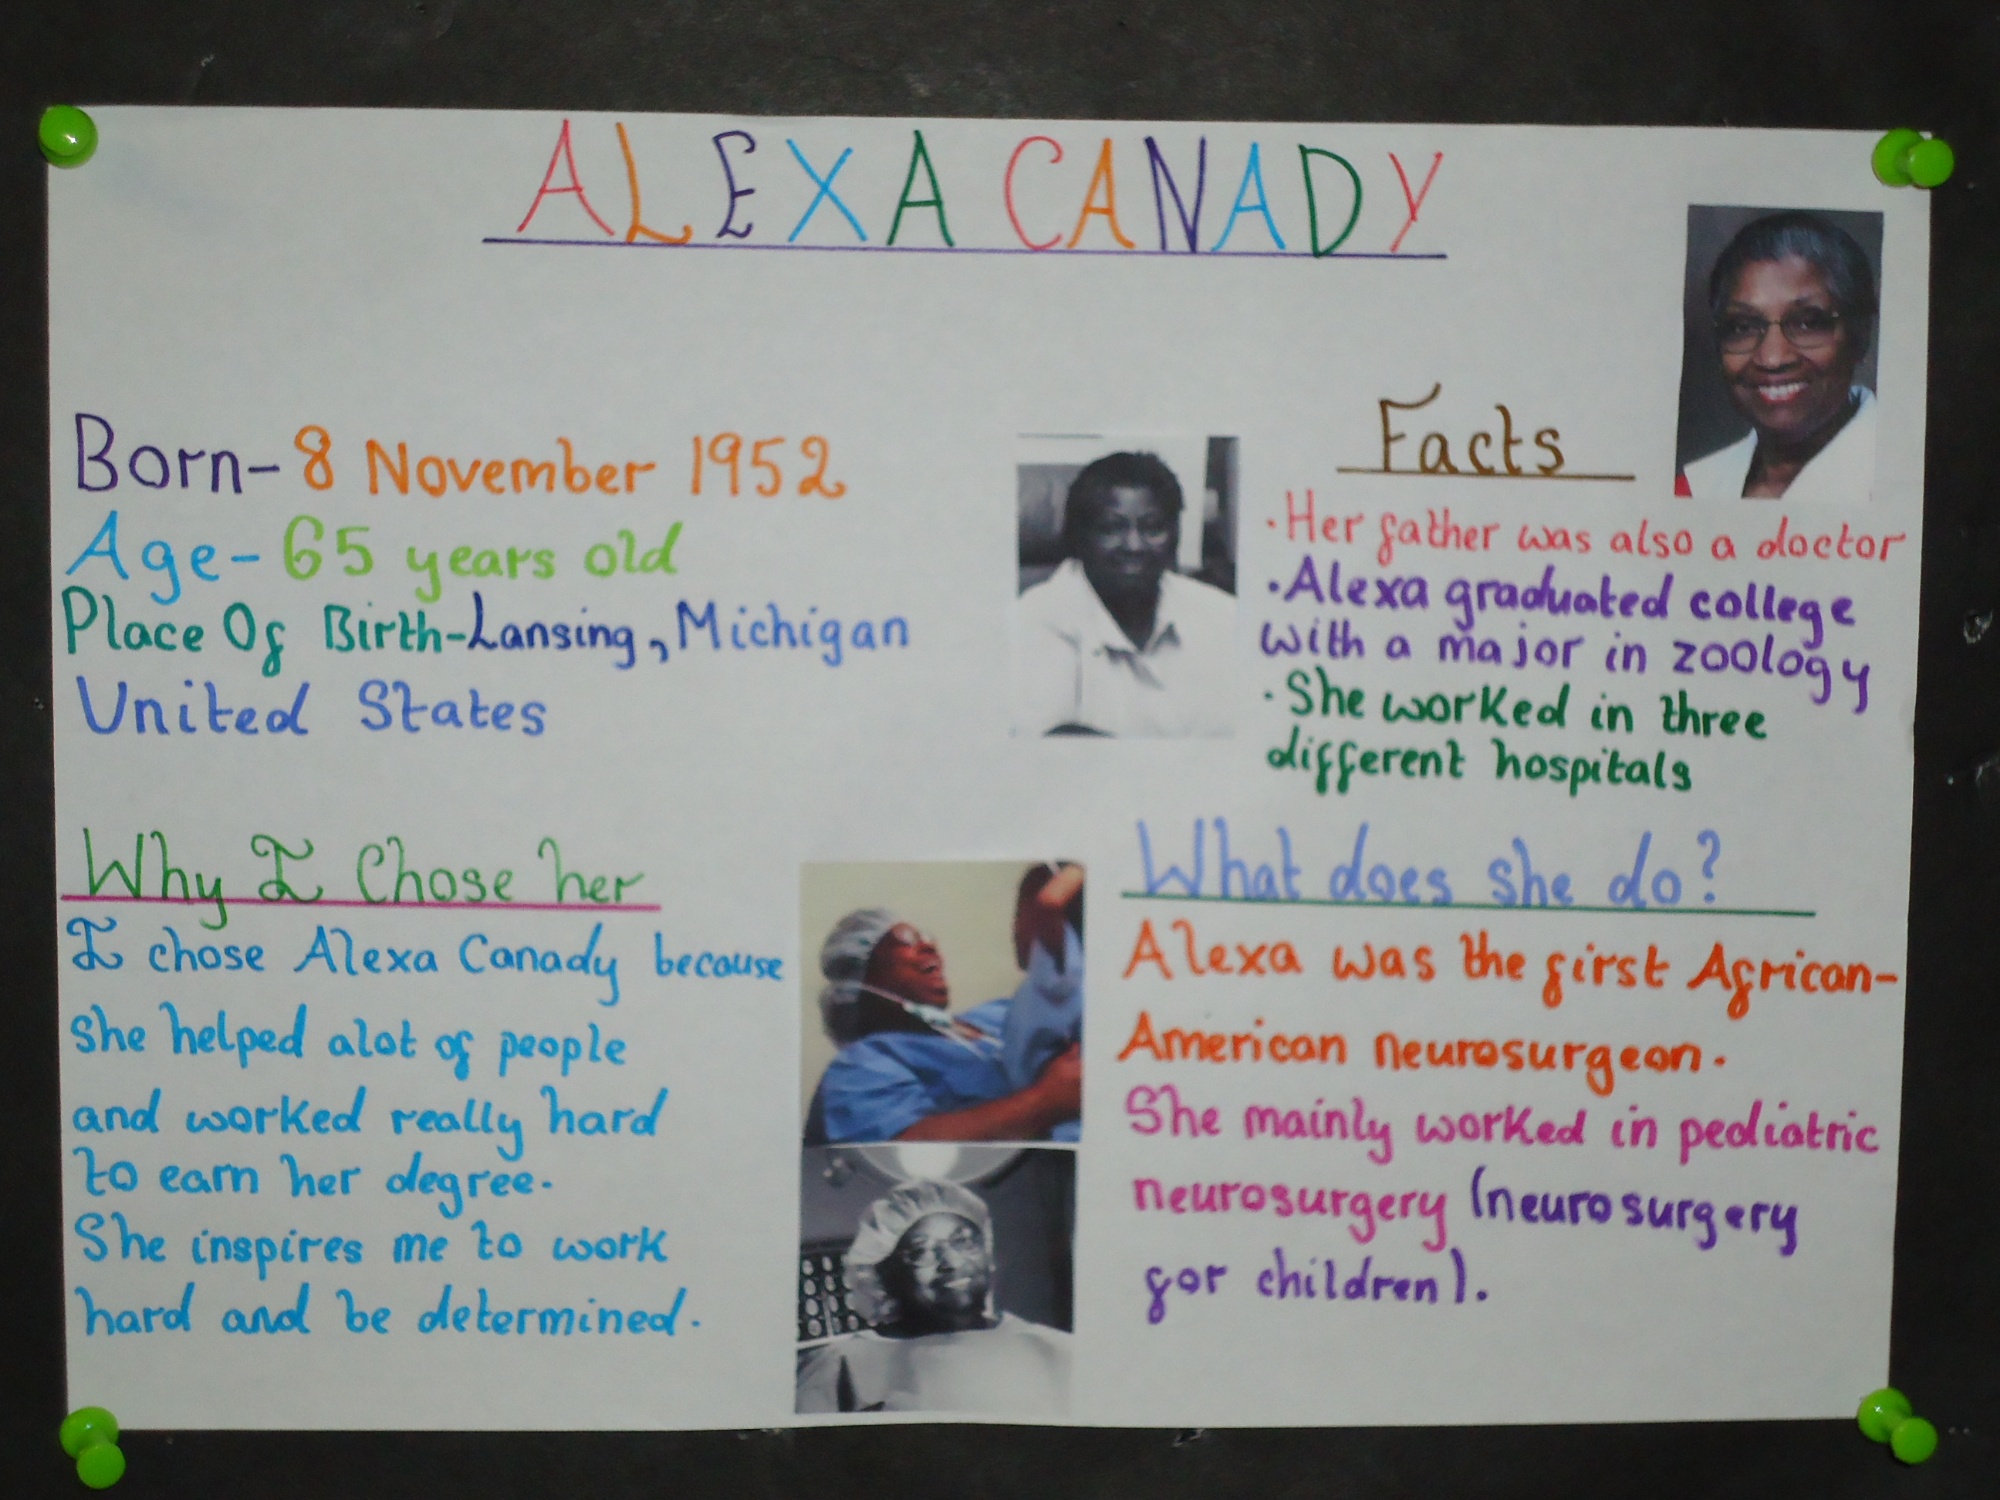 ALEXA CANADY
Born- 8 November 1952
Age- 65 years old
Place Of Birth-Lansing, Michigan
United States
Facts
·Her father was also a doctor
·Alexa graduated college
with a major in zoology
·She worked in three
different hospitals
Why I Chose her
I chose Alexa Canady because
she helped alot of people
and worked really hard
to earn her degree.
She inspires me to work
hard and be determined.
What does she do?
Alexa was the first African-
American neurosurgeon.
She mainly worked in pediatric
neurosurgery (neurosurgery
for children).